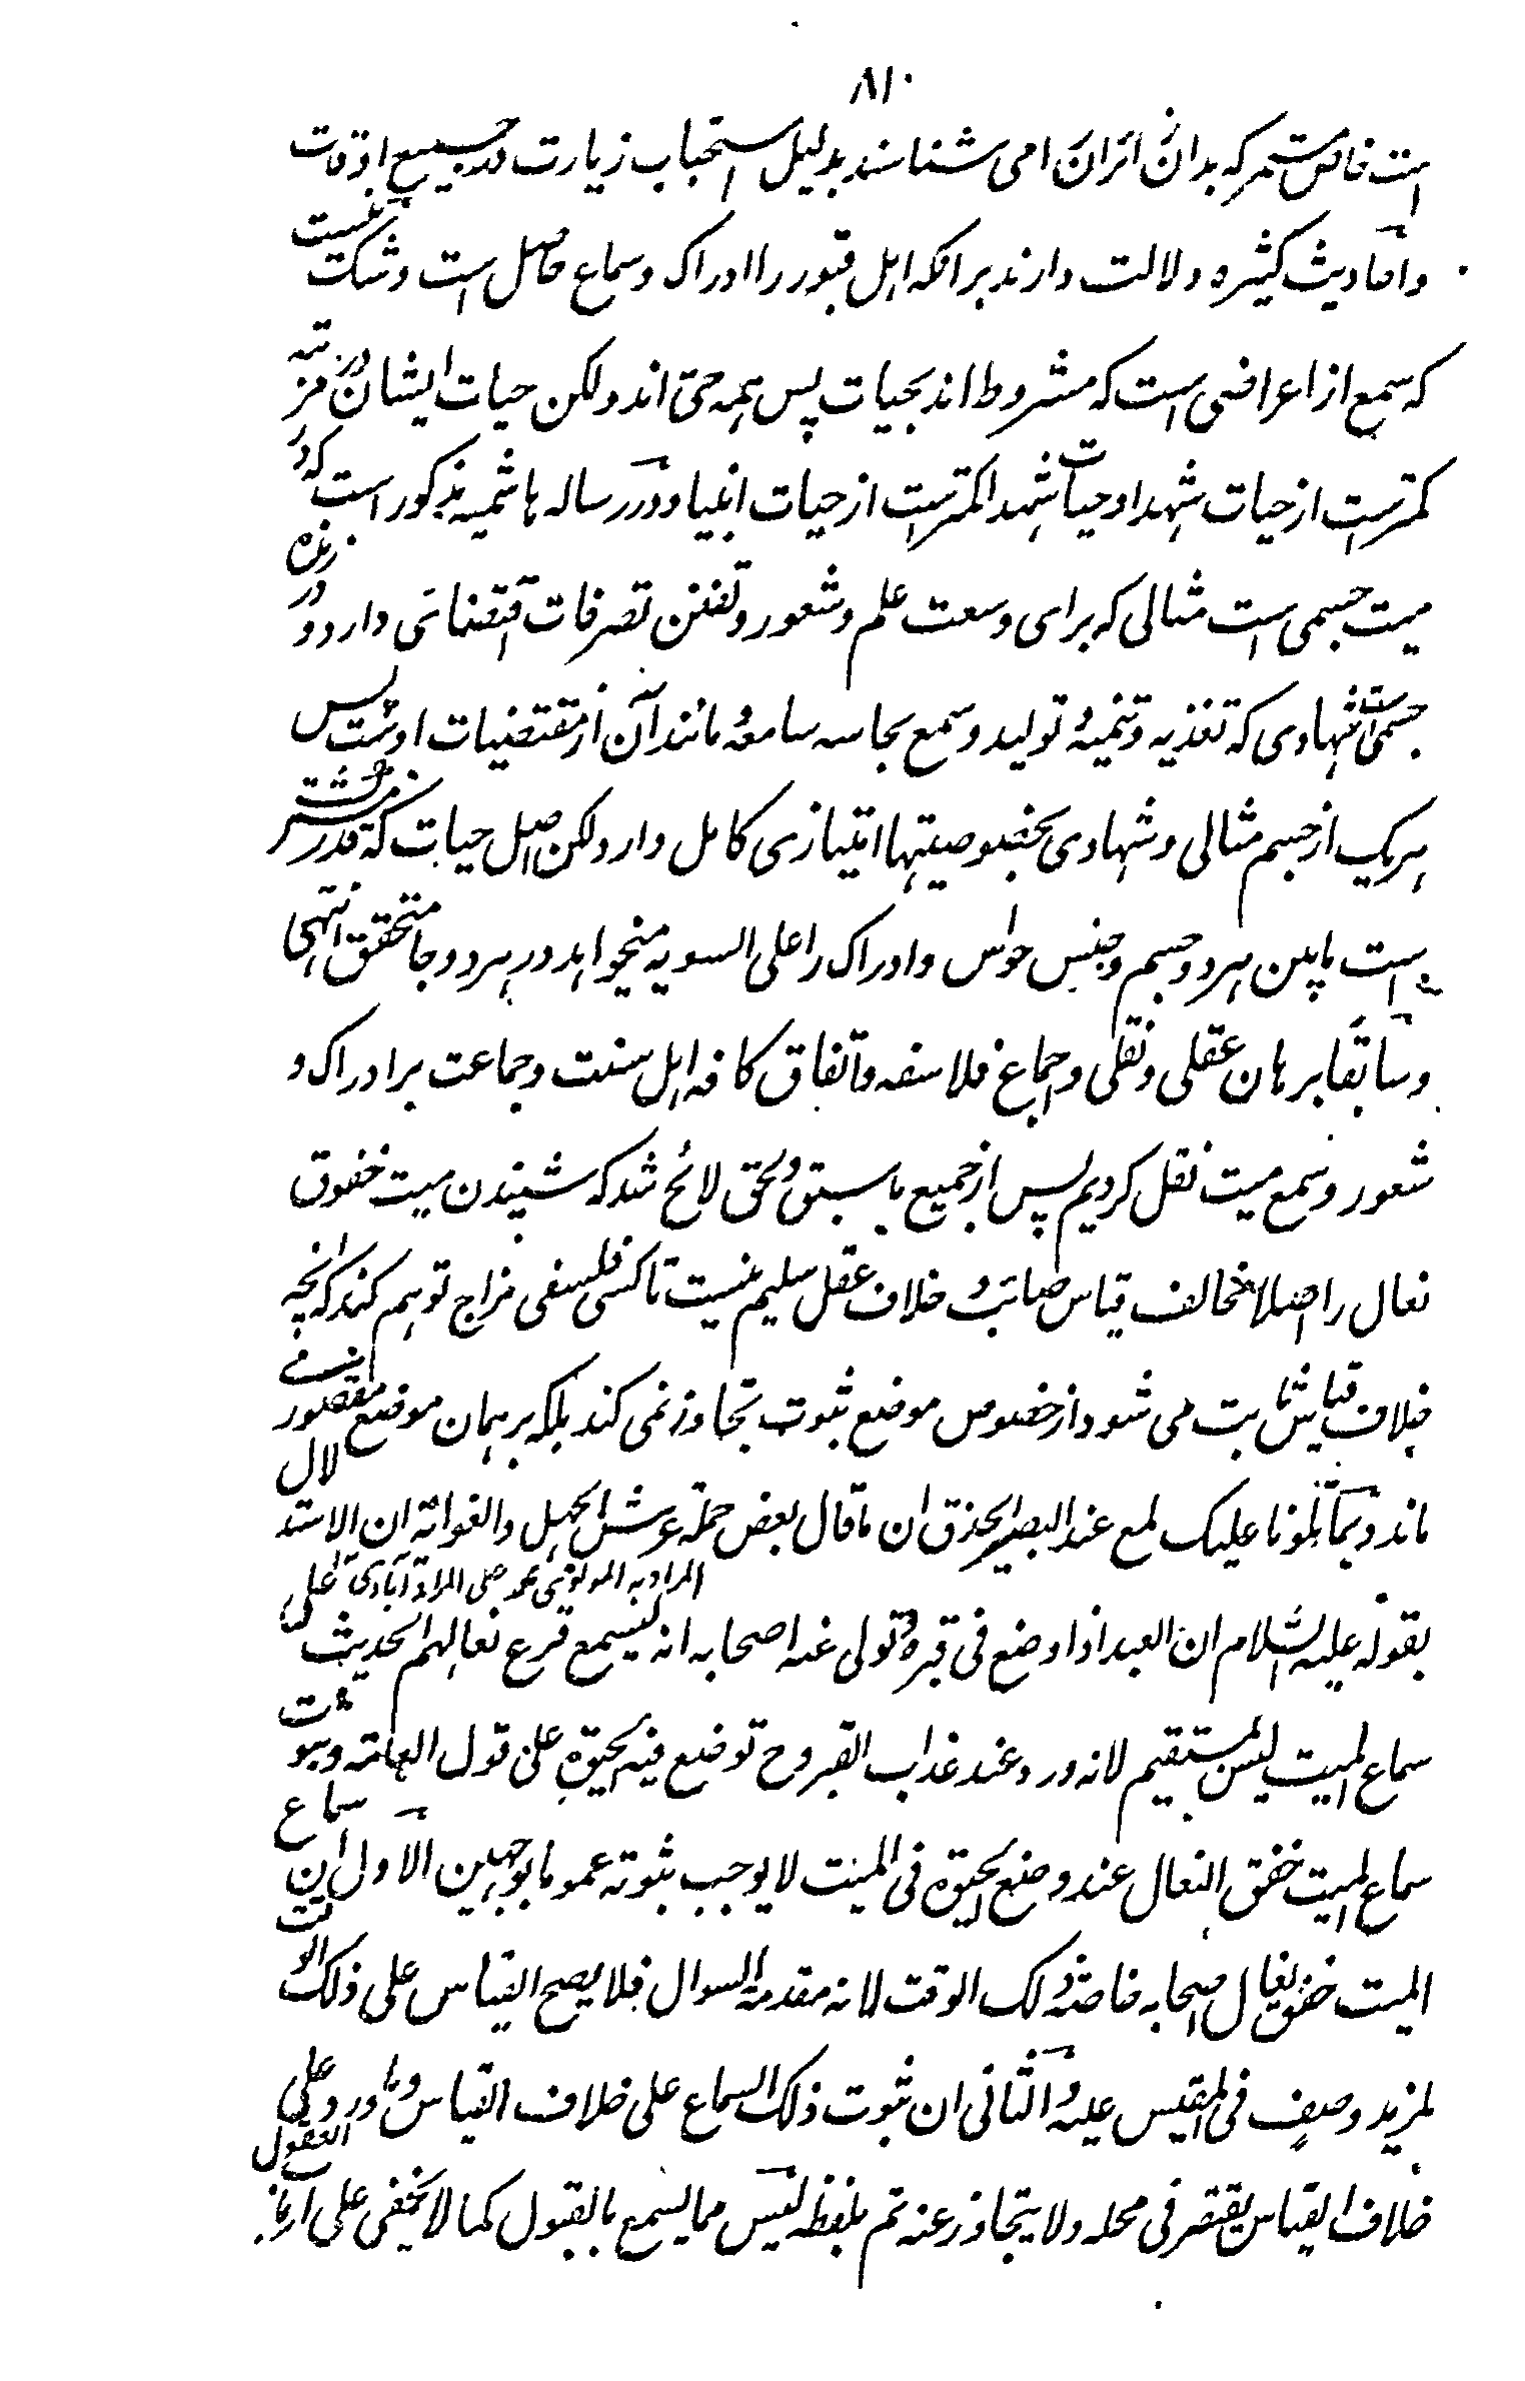 ۸۱۰
است خاص مستمر که بدان زائران را می شناسند بدلیل استحباب زیارت در جمیع اوقات
واحادیث کثیره دلالت دارند برانکه اهل قبور را ادراک وسماع حاصل است وشک نیست
که سمع از اعراضی است که مشروط اند بحیات پس همه حی اند ولکن حیات ایشان در مرتبه
کمترست از حیات شهدا وحیات شهدا کمترست از حیات انبیا ودر رساله هاشمیه مذکور است که در
میت جسمی است مثالی که برای وسعت علم وشعور وتفنن تصرفات اقتضائی دارد ودر زنده
جسمی است شهادی که تغذیه وتنمیه وتولید وسمع بحاسه سامعه ومانند آن از مقتضیات اوست پس
هریک از جسم مثالی وشهادی بخصوصیتها امتیازی کامل دارد ولکن اصل حیات که قدر مشترک
است مابین هردو جسم وجنس حواس وادراک را علی السویه میخواهد در هردو جا متحقق انتهی
وسابقا برهان عقلی ونقلی واجماع فلاسفه واتفاق کافه اهل سنت وجماعت برادراک و
شعور وسمع میت نقل کردیم پس از جمیع ما سبق ولحق لائح شد که شنیدن میت خفوق
نعال را اصلا مخالف قیاس صائب وخلاف عقل سلیم نیست تا کسی فلسفی مزاج توهم کند که انچه
خلاف قیاس ثابت می شود از خصوص موضع ثبوت تجاوز نمی کند بلکه بر همان موضع مقصور می
ماند وبما تلونا علیک لمع عند البصیر الحذق ان ما قال بعض حملة عرش الجهل والغوایة ان الاستدلال
المراد به المولوی محمد علی المرادآبادی
بقوله علیه السلام ان العبد اذا وضع فی قبره وتولی عنه اصحابه انه لیسمع قرع نعالهم الحدیث علی
سماع المیت لیس بمستقیم لانه ورد عند عذاب القبر وح توضع فیه الحیوة علی قول العامة وثبوت
سماع المیت خفق النعال عند وضع الحیوة فی المیت لا یوجب ثبوته عموما بوجهین الاول ان سماع
المیت خفق نعال اصحابه خاصة ذلک الوقت لانه مقدمة السوال فلا یصح القیاس علی ذلک الوقت
لمزید وصف فی المقیس علیه والثانی ان ثبوت ذلک السماع علی خلاف القیاس وما ورد علی
خلاف القیاس یقتصر فی محله ولا یتجاوز عنه تم بلفظه لیس مما یسمع بالقبول کما لا یخفی علی ارباب العقول